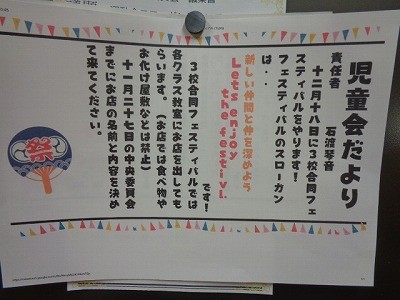 児童会だより
責任者
石渡琴音
十二月十八日に3校合同フェ
スティバルをやります！
フェスティバルのスローガン
は・・
新しい仲間と仲を深めよう
Lets enjoy
the festivl
です！
3校合同フェスティバルでは
各クラス教室にお店を出しても
らいます。（お店では食べ物や
お化け屋敷などは禁止）
十一月二十七日の中央委員会
までにお店の名前と内容を決め
て来てください。
祭